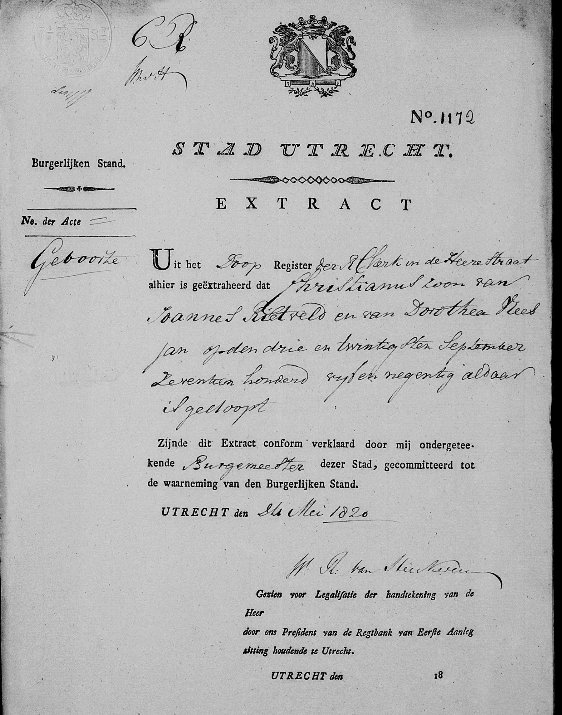 No. 1172
STAD UTRECHT.
Burgerlijken Stand.
EXTRACT
No. der Acte
Geboorte
Uit het Doop Register der R Kerk in de Heerestraat
alhier is geëxtraheerd dat Christianus zoon van
Joannes Rietveld en van Dorothea Vlees
jan op den drie en twintigsten September
Zeventien honderd vyf en negentig aldaar
is gedoopt
Zijnde dit Extract conform verklaard door mij ondergetee-
kende Burgemeester dezer Stad, gecommitteerd tot
de waarneming van den Burgerlijken Stand.
UTRECHT den Mei 1820
van
Gezien voor Legalisatie der handtekening van de
Heer
door ons President van de Regtbank van Eerste Aanleg
zitting houdende te Utrecht.
UTRECHT den 18